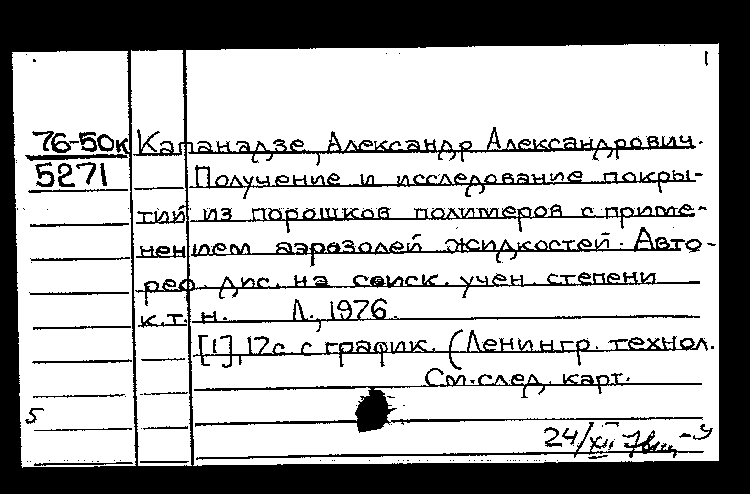 1
76-50к Капанадзе, Александр Александрович.
5271 Получение и исследование покры-
тий из порошков полимеров с приме-
нением аэрозолей жидкостей. Авто-
реф дис. на соиск. учен. степени
к.т.н. Л., 1976.
[1], 17с с график. (Ленингр. технол.
См. след. карт.
5
24/XII